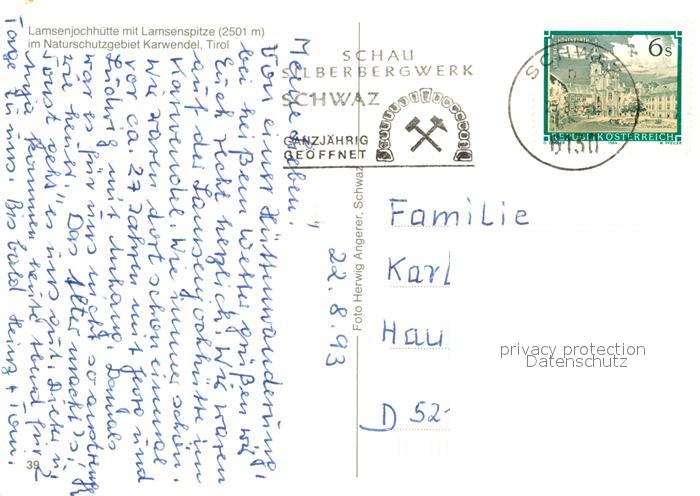 Lamsenjochhütte mit Lamsenspitze (2501 m)
im Naturschutzgebiet Karwendel, Tirol
SCHAU
SILBERBERGWERK
SCHWAZ
GANZJÄHRIG
GEÖFFNET
SCHWAZ
6130
6 S
REPUBLIK ÖSTERREICH
Meine Lieben,
Von einer Hüttenwanderung,
bei heißem Wetter grüßen wir
Euch recht herzlich. Wir waren
auf der Lamsenjochhütte im
Karwendel. Wie immer schön.
Wir waren dort schon einmal
vor ca. 27 Jahren mit und
Ludwig mit Anhang. Damals
war es für uns nicht so anstreng
wie heute. Das Alter macht's,
sonst geht's es uns gut. Dieter u.
Anja kommen heute Abend für 2
Tage zu uns. Bis bald Heinz +
22.8.93
Foto Herwig Angerer, Schwaz
39
Familie
Karl
Hau
D 52
privacy protection
Datenschutz